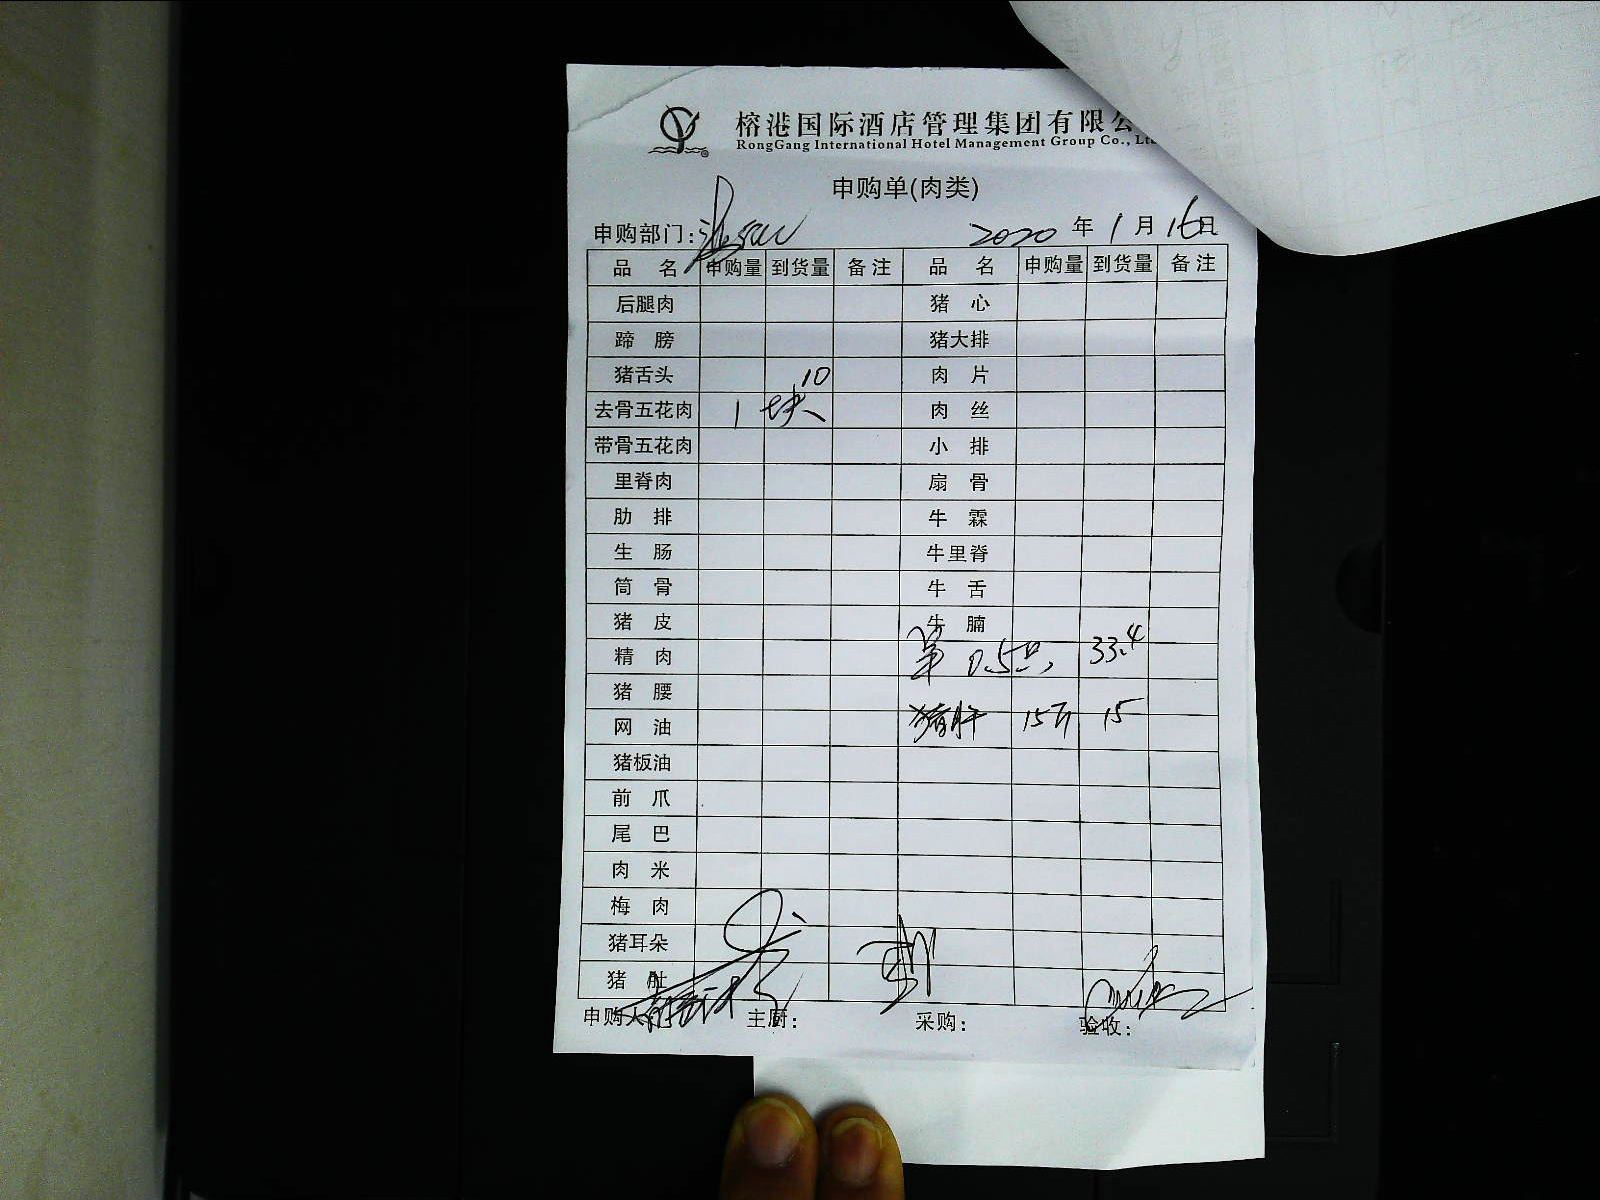 榕港国际酒店管理集团有限公
RongGang International Hotel Management Group Co., Lt
申购单(肉类)
申购部门: 2020 年 1 月 16 日
品 名 申购量 到货量 备注 品 名 申购量 到货量 备注
后腿肉 猪 心
蹄 膀 猪大排
猪舌头 肉 片
去骨五花肉 1块 10 肉 丝
带骨五花肉 小 排
里脊肉 扇 骨
肋 排 牛 霖
生 肠 牛里脊
筒 骨 牛 舌
猪 皮 牛 腩
精 肉 羊 0.5只 33.4
猪 腰
网 油 猪肝 15斤 15
猪板油
前 爪
尾 巴
肉 米
梅 肉
猪耳朵
猪 肚
申购人: 主厨: 采购: 验收: